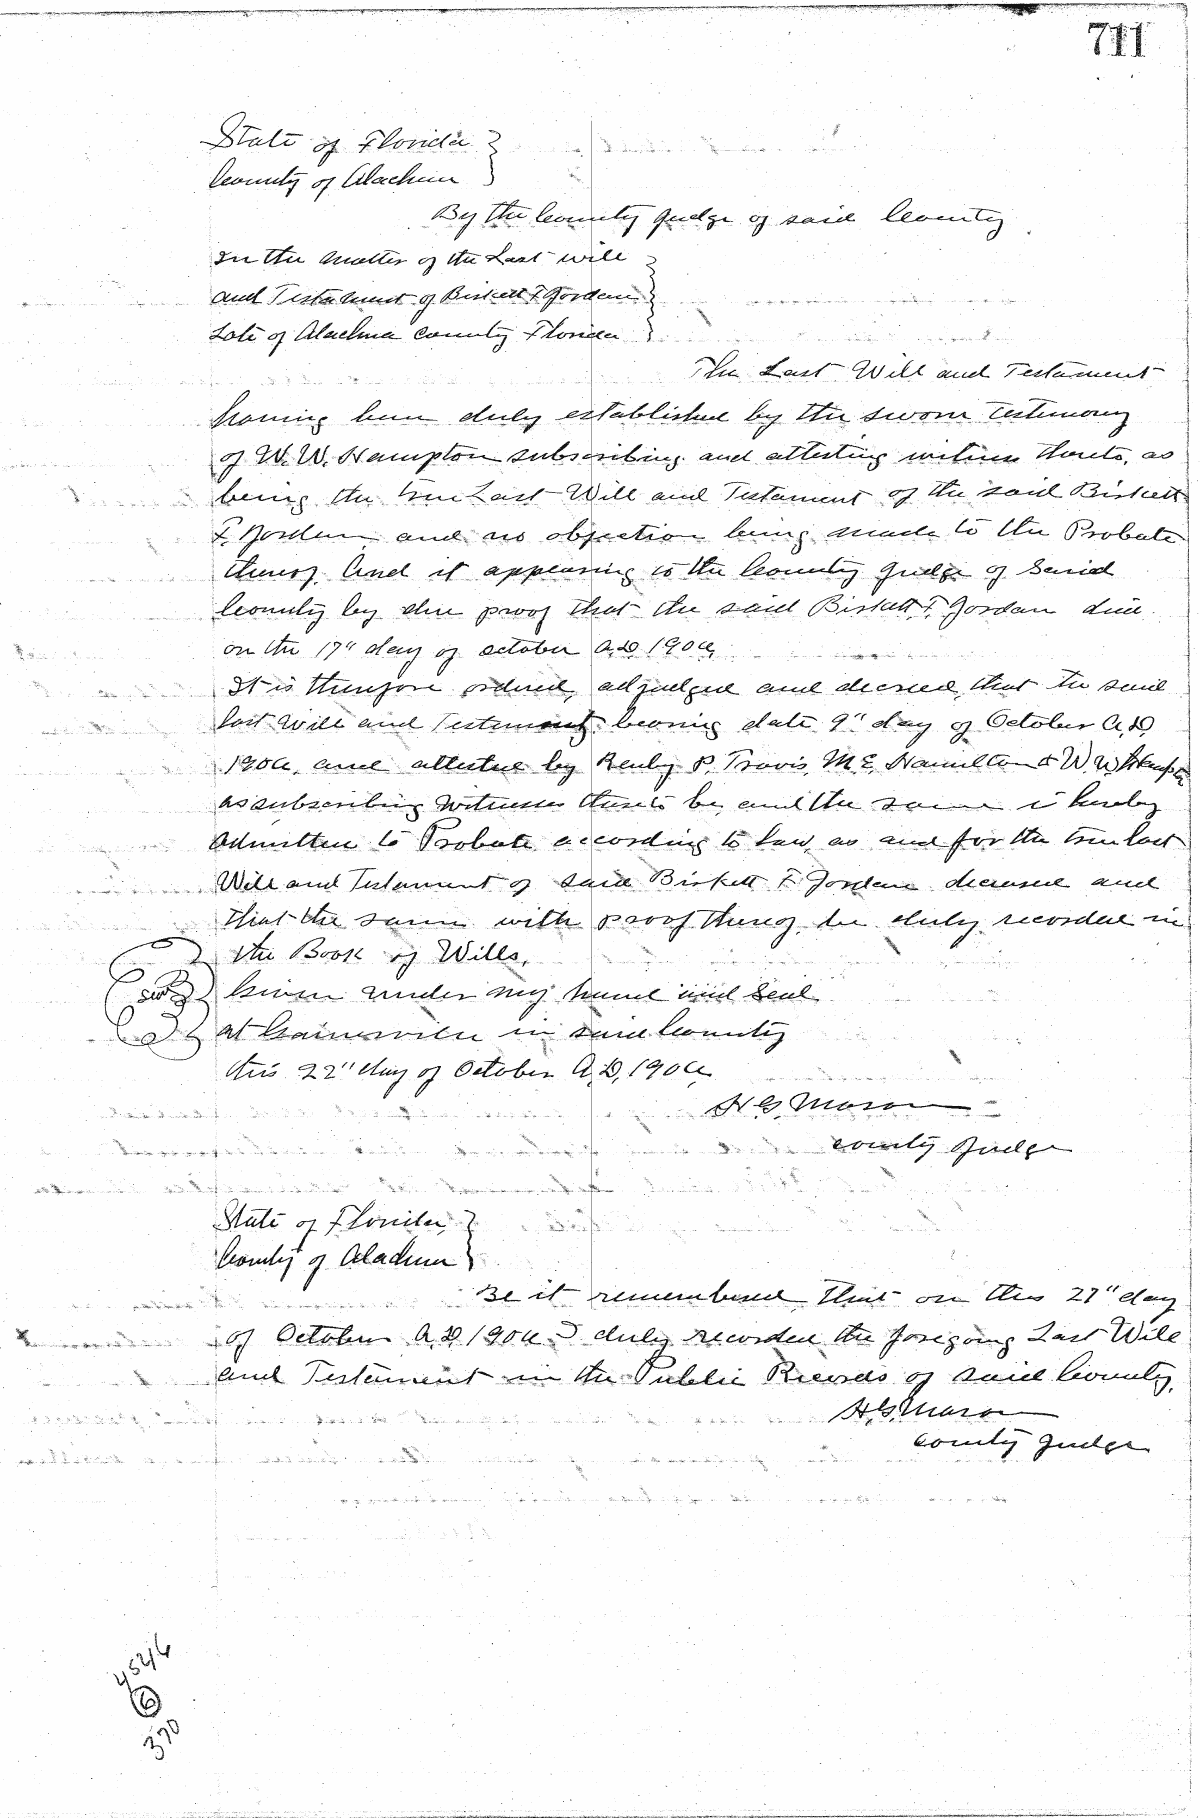 711
State of Florida
County of Alachua
By the County Judge of said County
In the matter of the Last will
and Testament of Birkett F Jordan
Late of Alachua County Florida
The Last Will and Testament
having been duly established by the sworn Testimony
of W. W. Hampton subscribing and attesting witness thereto, as
being the true Last Will and Testament of the said Birkett
F. Jordan, and no objection being made to the Probate
thereof, And it appearing to the County Judge of Said
County by due proof that the said Birkett F. Jordan died
on the 17" day of october A.D. 190
It is therefore ordered, adjudged and decreed, that the said
last Will and Testament bearing date 9" day of October A.D,
190 , and attested by P. Travis, M. E. Hamilton & W. W. Hampton
as subscribing witnesses thereto be, and the same is hereby
admitted to Probate according to law, as and for the true last
Will and Testament of said Birkett F Jordan deceased and
that the same with proof thereof be duly recorded in
the Book of Wills,
Given under my hand and Seal
at Gainesville in said County
this 22" day of October A.D, 190
H. G. Mason
County Judge
State of Florida,
County of Alachua
Be it remembered, that on this 27" day
of October A.D 190 I duly recorded the foregoing Last Will
and Testament in the Public Records of said County,
H. G. Mason
County Judge
6
370